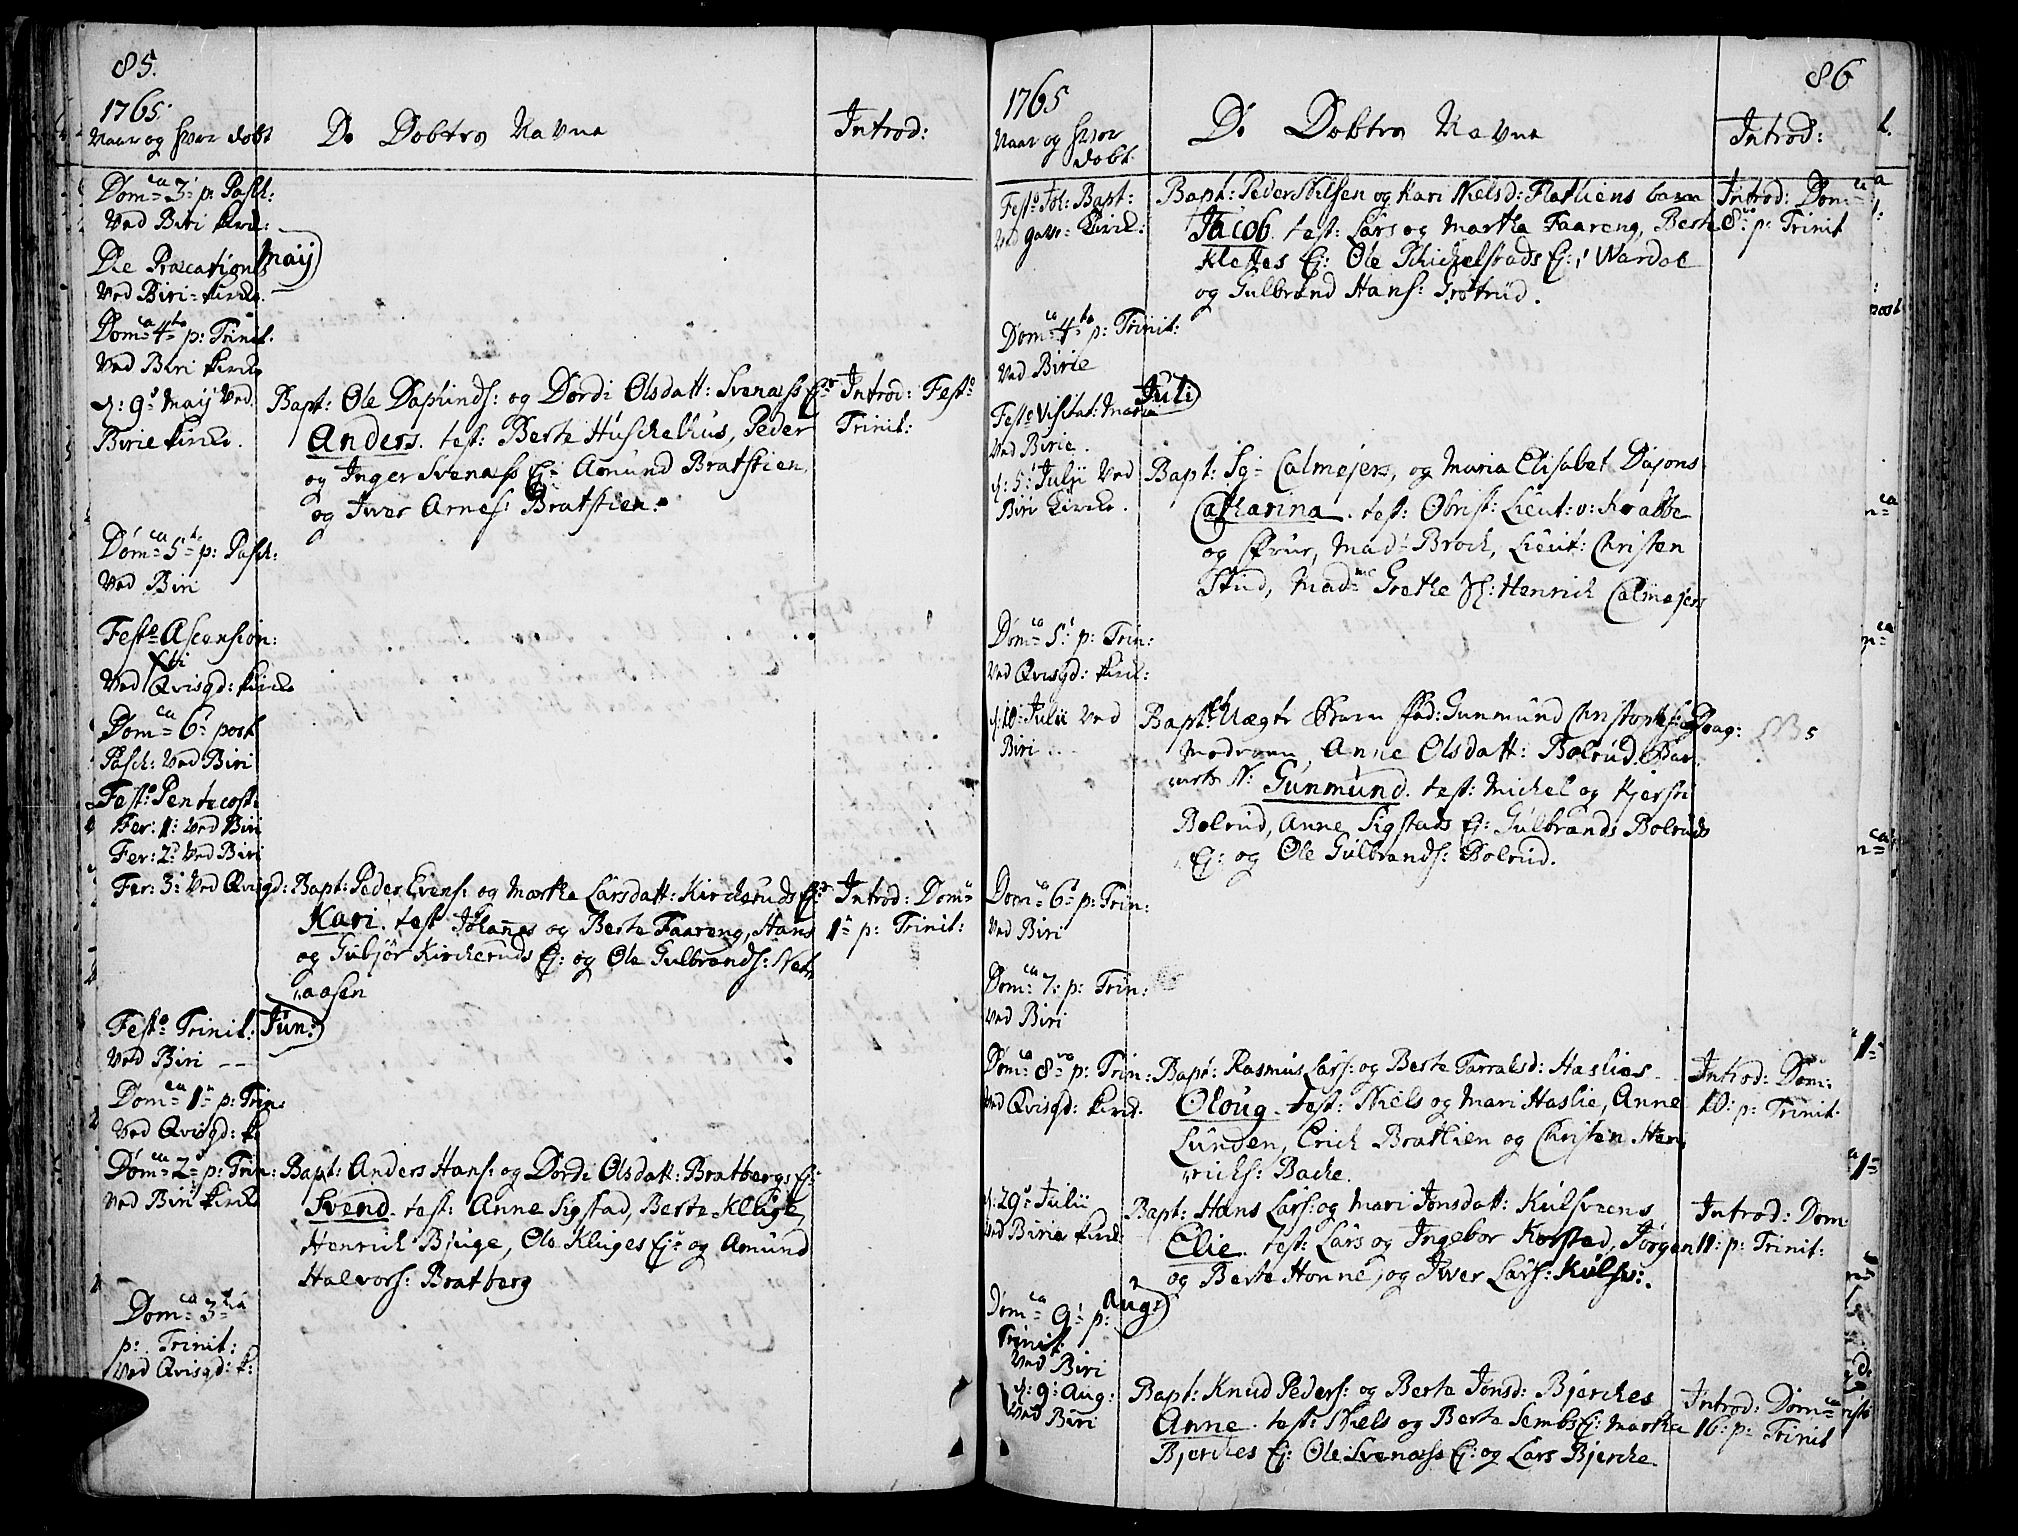 85.
1765.
Naar og hvor døbt
De Døbtes Navne
Introd:
Dom:ca 3: p: Pasch:
Ved Biri Kirke:
Die Precationis
Maij
Ved Biri-Kirke.
Dom:ca 4:to p: Trinit.
Ved Biri Kirke
d: 9: Maij Ved
Birie Kirke.
Bapt: Ole Dapfinds: og Dordi Olsdatt: Svenæss Ejer
Anders. test: Berte Huschelhus, Peder
og Inger Svenæss Ej: Amund Bratstien,
og Iver Arnes: Bratstien.
Introd: Fest:
Trinit:
Dom:ca 5:te p: Pasch:
Ved Biri
Fest:o Ascension:
Xti
Ved Qvisgd: Kirke
Dom:ca 6: post
Pasch: Ved Biri
Fest:o Pentecost:
Fer: 1: Ved Biri
Fer: 2: Ved Biri
Fer: 3: Ved Qvisgd:
Bapt: Peder Evens: og Martha Larsdatt: Kirkeruds Ejer
Kari. test Johanes og Berte Faareng, Hans
og Gubjør Kirkeruds Ej: og Ole Gulbrands: Næt
aasen
Introd: Dom:
1:a p: Trinit:
Fest:o Trinit:
Jun:
Ved Biri
Dom:ca 1:a p: Trin:
Ved Qvisgd: K:
Dom:ca 2: p: Trin:
Ved Biri Kirke
Bapt: Anders Hans: og Dordi Olsdatt: Bratbergs Ej:
Svend. test: Anne Sigstad, Berte Kluge,
Henrich Bjuge, Ole Kluges Ej: og Amund
Halvors: Bratberg
Dom:ca 3:tia
p: Trinit:
Ved Qvisgd: K:
86
1765
Naar og hvor
døbt
De Døbtes Navne
Introd:
Fest:o Joh: Bapt:
Ved Kirke:
Bapt: Peder Nilsen og Kari Nielsd: Flatliens barn
Jacob. test: Lars og Martha Faareng, Berte
Klettes Ej: Ole Michelstads Ej: Wardal
og Gulbrand Hans: Grøtrud.
Introd: Dom:ca
8:vo p: Trinit
Dom:ca 4:to p: Trinit:
Ved Birie
Juli
Fest:o Visitat: Mariæ
Ved Birie.
d: 5: Julii Ved
Biri Kirke.
Bapt: Sg: Calmejers, og Maria Elisabet Dajons
Catharina. test: Obrist: Lieut: v: Krabbe
og Frue, Mad: Broch, Lieut: Christen
Stud, Mad:me Grethe Henrich Calmejers
Dom:ca 5: p: Trin:
Ved Qvisgd: Kirk:
d: 10: Julii Ved
Biri
Bapt: Uægte Barn Fad: Gunmund Christophs: Drag:
Moderen, Anne Olsdatt: Bolrud, Bar:
nets N: Gunmund. test: Michel og Kjersti
Bolrud, Anne Sigstads Ej: Gulbrands Bolruds
Ej: og Ole Gulbrands: Bolrud.
Dom:ca 6: p: Trin:
Ved Biri
Dom:ca 7: p: Trin:
Ved Biri
Dom:ca 8:vo p: Trin:
Ved Qvisgd: Kirk.
Bapt: Rasmus Lars: og Berte Tarralsd: Haslies
Oloug. test: Niels og Mari Haslie, Anne
Lunden, Erich Brathien og Christen Hen
richs: Bache.
Introd: Dom:
10: p: Trinit:
d: 29: Julii
Ved Birie Kirke
Bapt: Hans Lars: og Mari Jonsdatt: Kulsveens
Elie. test: Lars og Ingebor Korstad, Jørgen
og Berte Honne, og Iver Lars: Kulsv:
Introd: Dom
11: p: Trinit:
Aug:
Dom:ca 9: p:
Trinit:
Ved Biri
d: 9: Aug:
Ved Biri
Bapt: Knud Peders: og Berte Jonsd: Bjerches
Anne. test: Niels og Berte Sembs Ej: Martha
Bjerches Ej: Ole Svenæss Ej: og Lars Bjerche.
Introd: Dom:ca
16: p: Trinit